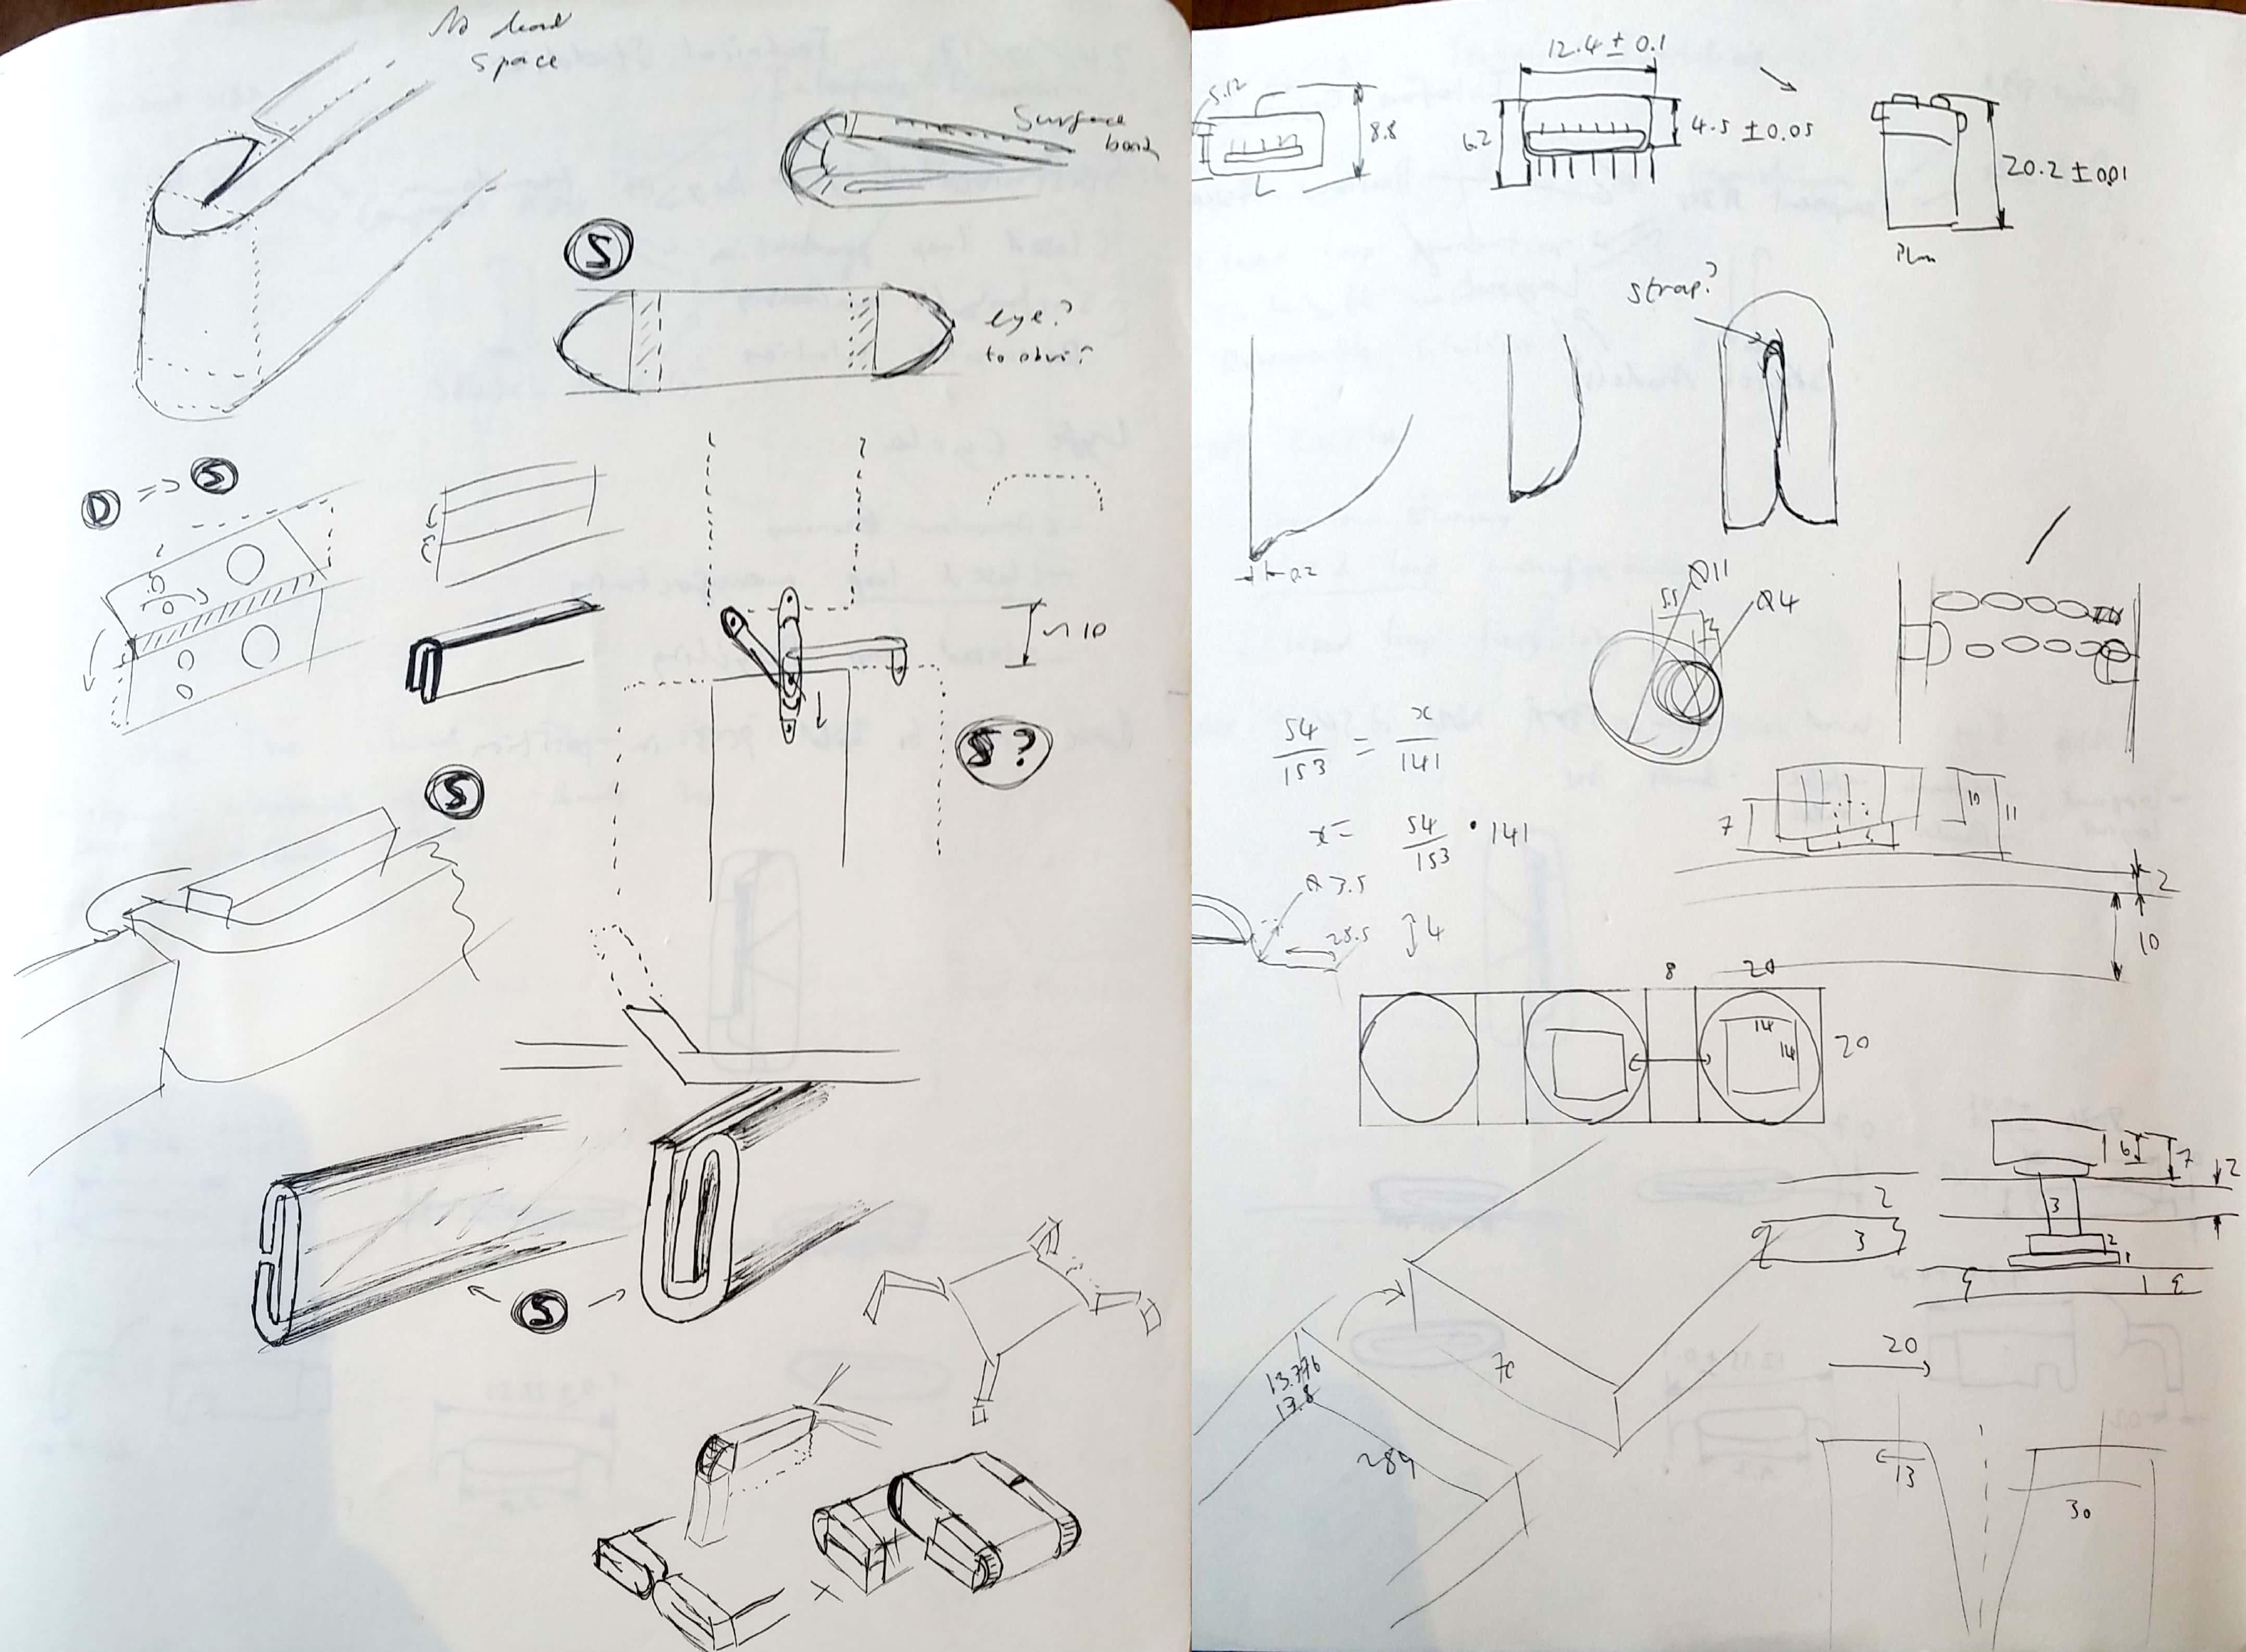 No dead
space
Surface
bond
S
eye?
D => S
~ 10
S?
S
S
12.4 ± 0.1
5.12
8.8
6.2
4.5 ± 0.05
20.2 ± 0.1
Plan
Strap?
0.2
Ø11
5.5
2
Ø4
54/153 = x/141
x = 54/153 · 141
7
10
11
2
10
Ø 3.5
25.5
4
8
20
14
14
20
6
7
2
2
3
3
2
1
20
70
13.776
13.8
289
13
30